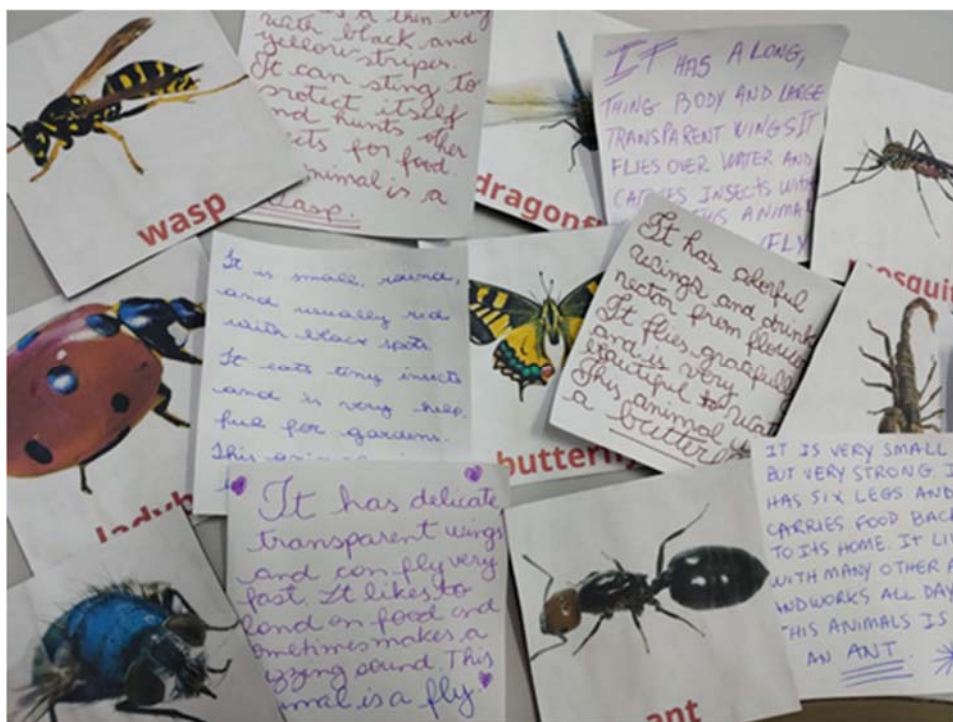 a thin
with black and
yellow stripes.
It can sting to
protect itself
hunts other
for food.
is a
wasp.
wasp
IT HAS A LONG,
THING BODY AND LARGE
TRANSPARENT WINGS IT
FLIES OVER WATER AND
INSECTS WITH
THIS ANIMAL
FLY
It is small, round,
and usually red
with black spots
It eats tiny insects
and is very help-
ful for gardens.
This
It has
wings and drink
nectar from
It flies gracefully
and is very
beautiful to
This animal is
a
IT IS VERY SMALL
BUT VERY STRONG.
HAS SIX LEGS AND
CARRIES FOOD BACK
TO ITS HOME. IT
WITH MANY OTHER
WORKS ALL DAY
ANIMALS IS
AN ANT.
It has delicate
transparent wings
and can fly very
fast. It likes to
land on food and
makes a
sound. This
is a fly.
ant